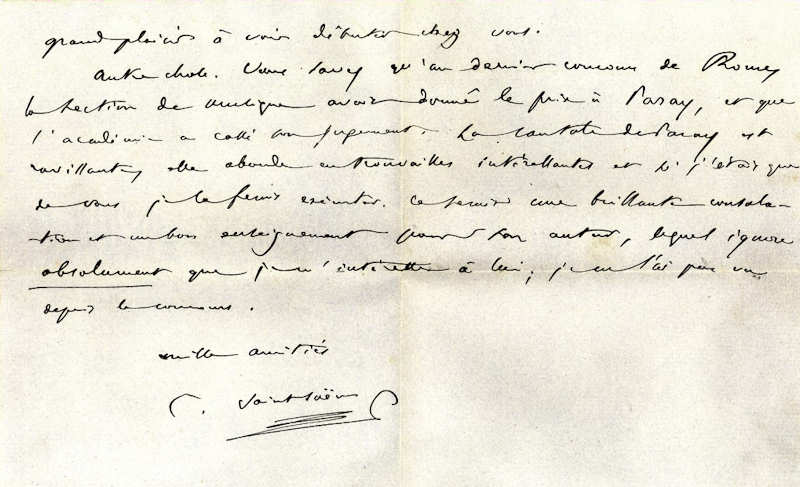 grand plaisir à voir débuter chez vous.
Autre chose. Vous savez qu'au dernier concours de Rome,
la section de musique avait donné le prix à Paray, et que
l'académie a cassé son jugement. La cantate de Paray est
ravissante, elle abonde en trouvailles intéressantes et si j'étais que
de vous je la ferais exécuter. Ce serait une brillante consola-
tion et un bon enseignement pour son auteur, lequel ignore
absolument que je m'intéresse à lui; je ne l'ai pas vu
depuis le concours.
mille amitiés
C. Saint-Saëns